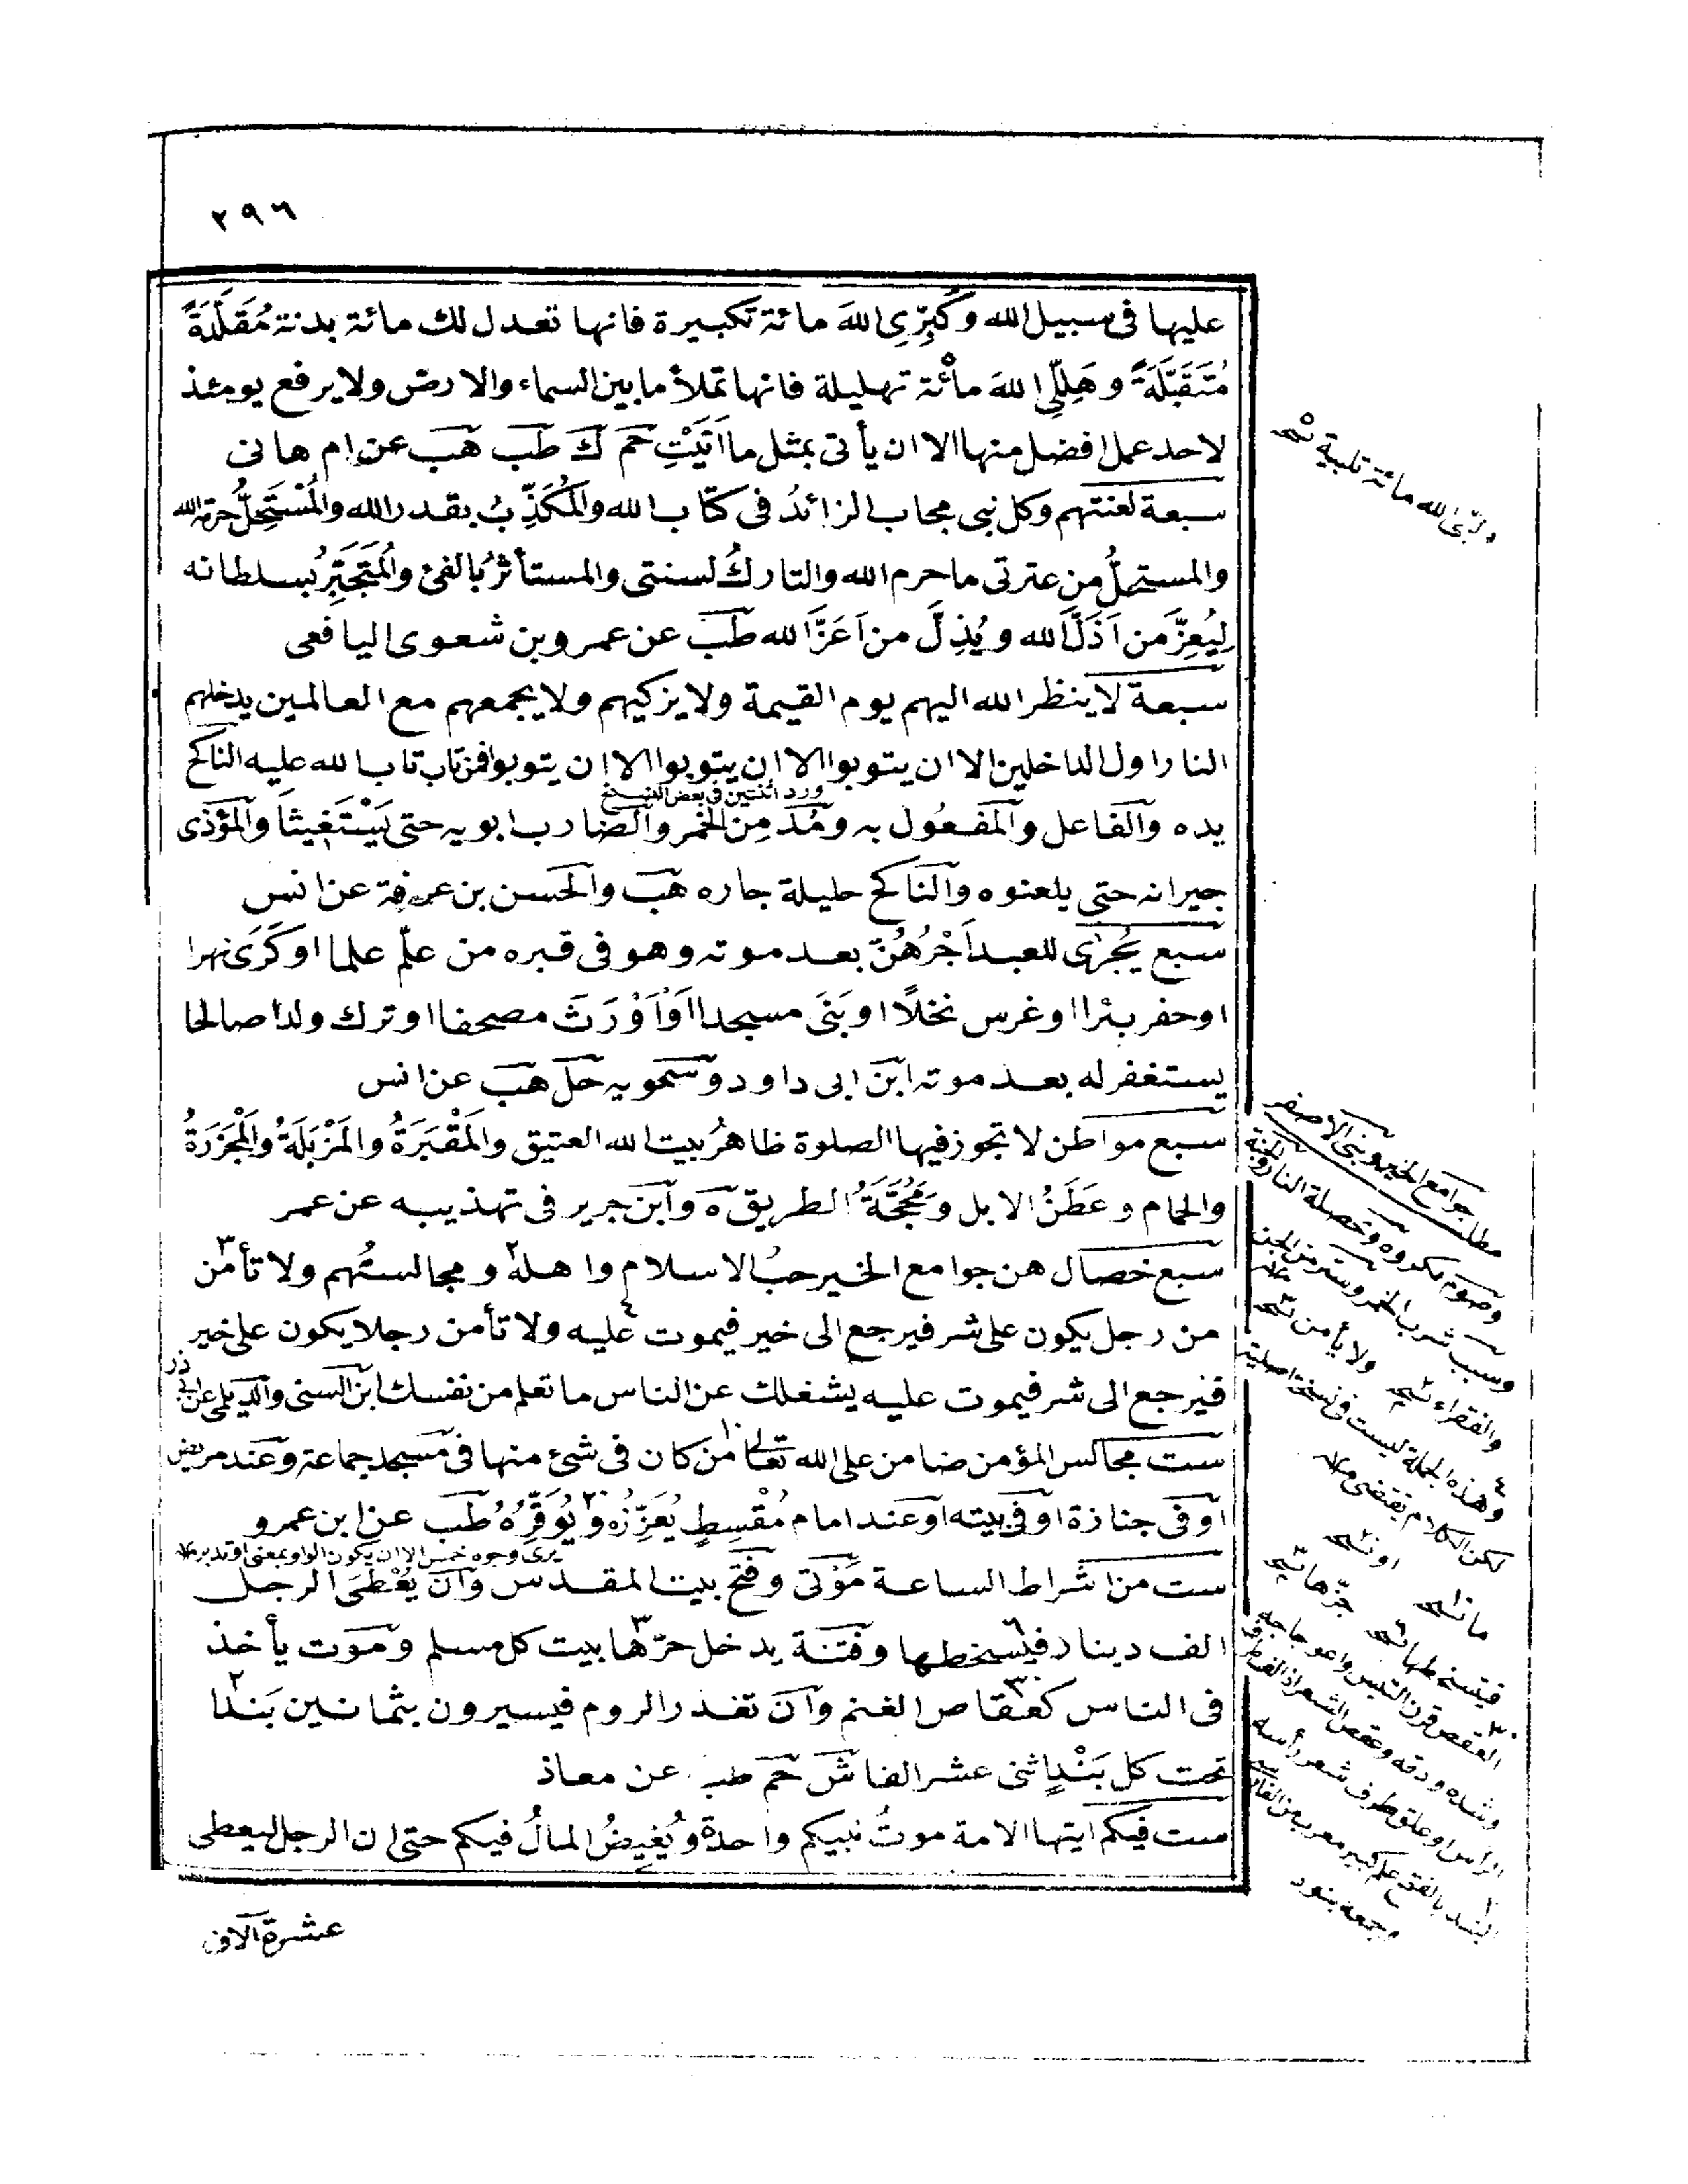 ٢٩٦
عليها فى سبيل الله وَكَبِّرِى اللهَ مائة تكبيرة فانها تعدل لك مائة بدنة مُقَلَّدَةً
مُتَقَبَّلَةً و هَلِّلِى اللهَ مائة تهليلة فانها تملأ ما بين السماء والارض ولا يرفع يومئذ
لاحد عمل افضل منها الا ان يأتى بمثل ما اَتَيْتِ حم ك طب هب عن ام هانى
سبعة لعنتهم وكل نبى مجاب الزائدُ فى كتاب الله والمُكَذِّبُ بقدر الله والمُسْتَحِلُّ حرمة الله
والمستحلُّ من عترتى ما حرم الله والتاركُ لسنتى والمستأثرُ بالفئ والمُتَجَبِّرُ بسلطانه
لِيُعِزَّ من اَذَلَّ الله و يُذِلَّ من اَعَزَّ الله طب عن عمرو بن شعوى اليافعى
سبعة لا ينظر الله اليهم يوم القيمة ولا يزكيهم ولا يجمعهم مع العالمين يدخلهم
النار اول الداخلين الا ان يتوبوا الا ان يتوبوا الا ان يتوبوا فمن تاب تاب الله عليه الناكح
ورد اثنتين فى بعض النسخ
يده والفاعل والمَفعُول به ومُدْمِن الخمر والضارب ابويه حتى يَسْتَغِيثَا والمؤذى
جيرانه حتى يلعنوه والناكح حليلة جاره هب والحسن بن عرفة عن انس
سبع يُجْرٰى للعبد اَجْرُهُنَّ بعد موته وهو فى قبره من علّم علما او كَرَى نهرا
او حفر بئرا او غرس نخلًا او بَنَى مسجدا اَوْ اَوْرَثَ مصحفا او ترك ولدا صالحا
يستغفر له بعد موته ابن ابى داود وسمويه حل هب عن انس
سبع مواطن لا تجوز فيها الصلوة ظاهرُ بيت الله العتيق والمَقْبَرَةُ والمَزْبَلَةُ والمَجْزَرَةُ
والحمام وعَطَنُ الابل وَمَحَجَّةُ الطريق ه وابن جرير فى تهذيبه عن عمر
سبع خصال هن جوامع الخير حبُ الاسلام واهله ٢ ومجالستُهم ولا تأمن ٣
من رجل يكون على شر فيرجع الى خير فيموت عليه ٤ ولا تأمن رجلا يكون على خير
فيرجع الى شر فيموت عليه يشغلك عن الناس ما تعلم من نفسك ابن السنى والديلمى عن ابى ذر
ست مجالس المؤمن ضامن على الله تعالى من كان فى شئ منها فى مسجد جماعة وعند مريض
او فى جنازة او فى بيته او عند امام مُقْسِطٍ يُعَزِّزُه وَيُوَقِّرُهُ طب عن ابن عمرو
يرى وجوه خمس الا ان يكون الواو بمعنى او تدبر
ست من اشراط الساعة مَوْتى وفتح بيت المقدس وَان يُعْطَى الرجل
الف دينار فيسخطها وفتنة يدخل حرّها بيت كل مسلم ومَوت يأخذ
فى الناس كعقاص الغنم وَان تغدر الروم فيسيرون بثمانين بَندا
تحت كل بَنْدٍ اثنى عشر الفا ش حم طب عن معاذ
ست فيكم ايتها الامة موتُ نبيكم واحدة ويُغِيضُ المالُ فيكم حتى ان الرجل ليعطى
عشرة آلاف
ولبّى الله مائة تلبية نسخه
مطلب جوامع الخير وبنى الاصفر
وصوم مكروه وخصلة النار والجنة
وسبب شرب الخمر وستر من الجن
ولا يأمن نسخه
والفقراء نسخه
وهذه الجملة ليست فى نسخة اصلية
لكن الكلام يقتضى
او نسخه
ما نسخه
جرّها نسخه
فيتسخطها نسخه
العقص قرن التيس
وجمعه بنود